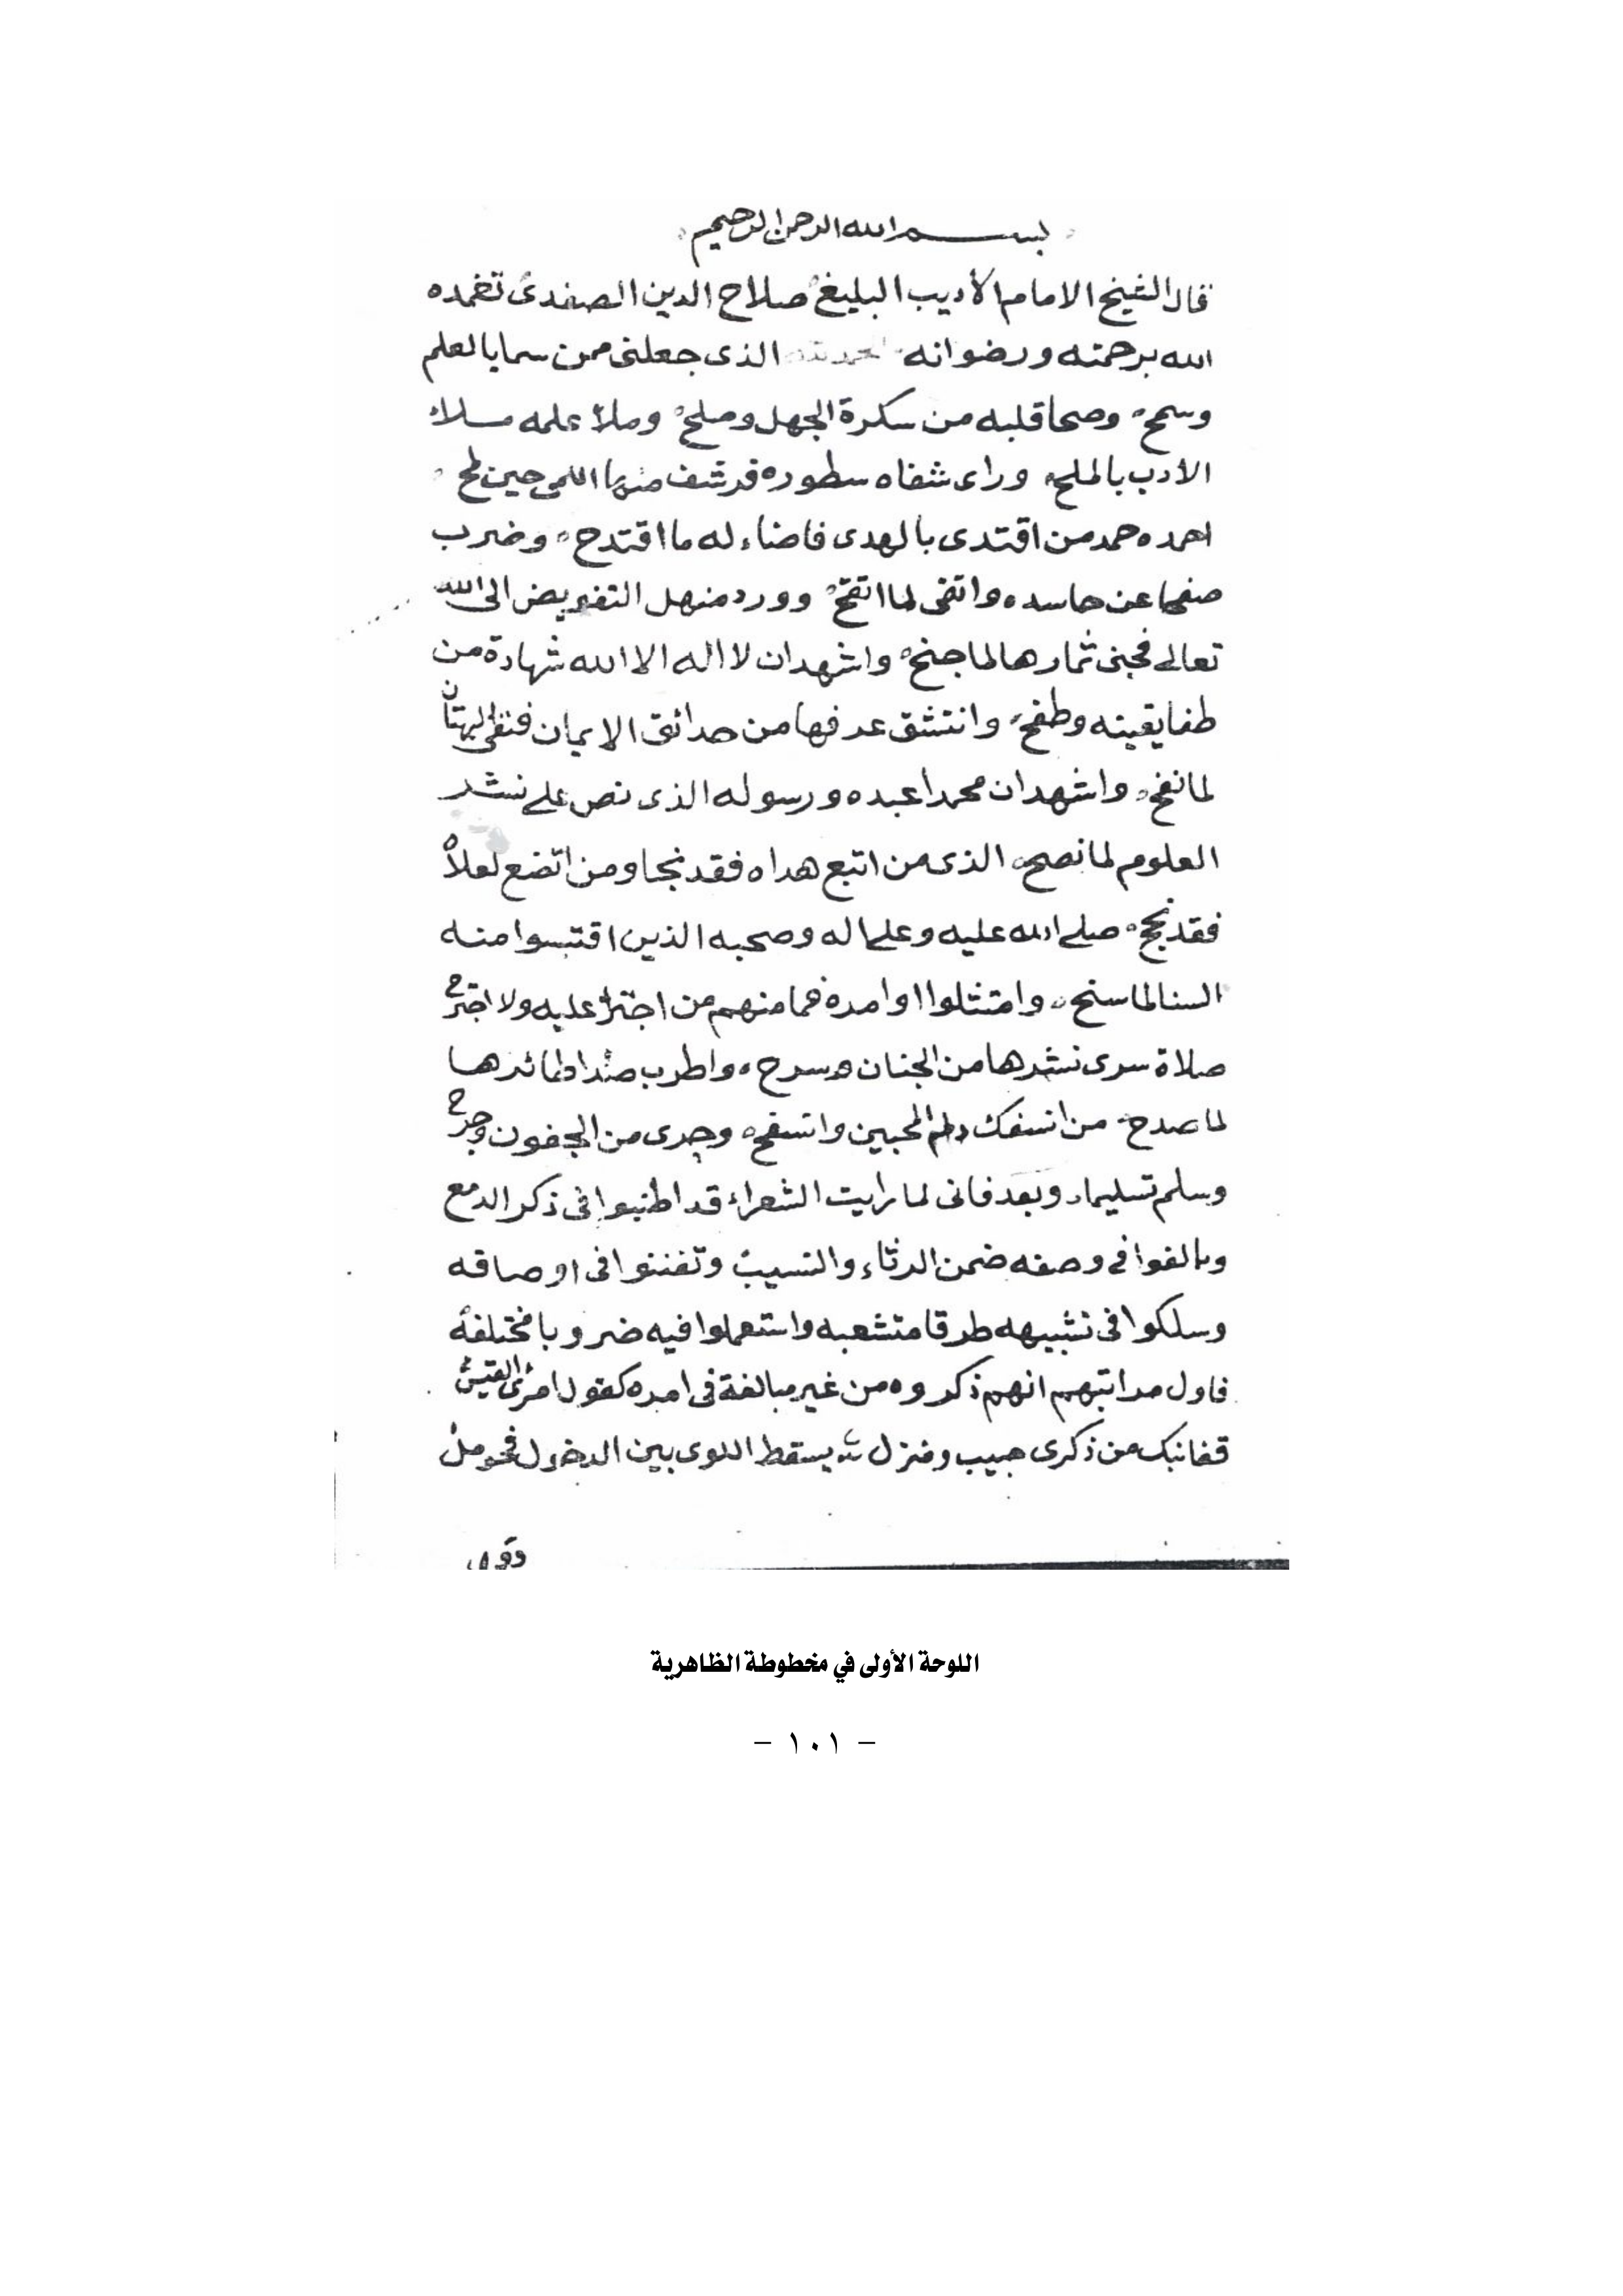 بسم الله الرحمن الرحيم
قال الشيخ الامام الأديب البليغ صلاح الدين الصفدى تغمده
الله برحمته ورضوانه الحمد لله الذى جعلنى ممن سما بالعلم
وسمح وصحا قلبه من سكرة الجهل وملح وملأ علمه سلاك
الادب بالملح وراى شفاه سطوره فرشف منها اللمى حين لمح
احمده حمد من اقتدى بالهدى فاضاء له ما اقتدح وضرب
صفحا عن حاسده واتقى لما اتقح وورد منهل التفويض الى الله
تعالى فجنى ثمارها لما جنح واشهد ان لا اله الا الله شهادة من
طفا يقينه وطفح وانتشق عرفها من حدائق الايمان فنفى البهتان
لما نفح واشهد ان محمدا عبده ورسوله الذى نص على نشر
العلوم لما نصح الذى من اتبع هداه فقد نجا ومن اتضع لعلاه
فقد نجح صلى الله عليه وعلى اله وصحبه الذين اقتبسوا منه
السنا لما سنح وامتثلوا اوامره فما منهم من اجترأ عليه ولا اجترح
صلاة سرى نشرها من الجنان وسرح واطرب صدا طائرها
لما صدح من انسفك دم المحبين وانسفح وجرى من الجفون وجرح
وسلم تسليما وبعد فانى لما رايت الشعراء قد اطنبوا فى ذكر الدمع
وبالغوا فى وصفه ضمن الرثاء والنسيب وتفننوا فى اوصافه
وسلكوا فى تشبيهه طرقا متشعبه واستعملوا فيه ضروبا مختلفة
فاول مراتبهم انهم ذكروه من غير مبالغة فى امره كقول امرئ القيس
قفا نبك من ذكرى حبيب ومنزل بسقط اللوى بين الدخول فحومل
اللوحة الأولى في مخطوطة الظاهرية
- ١٠١ -